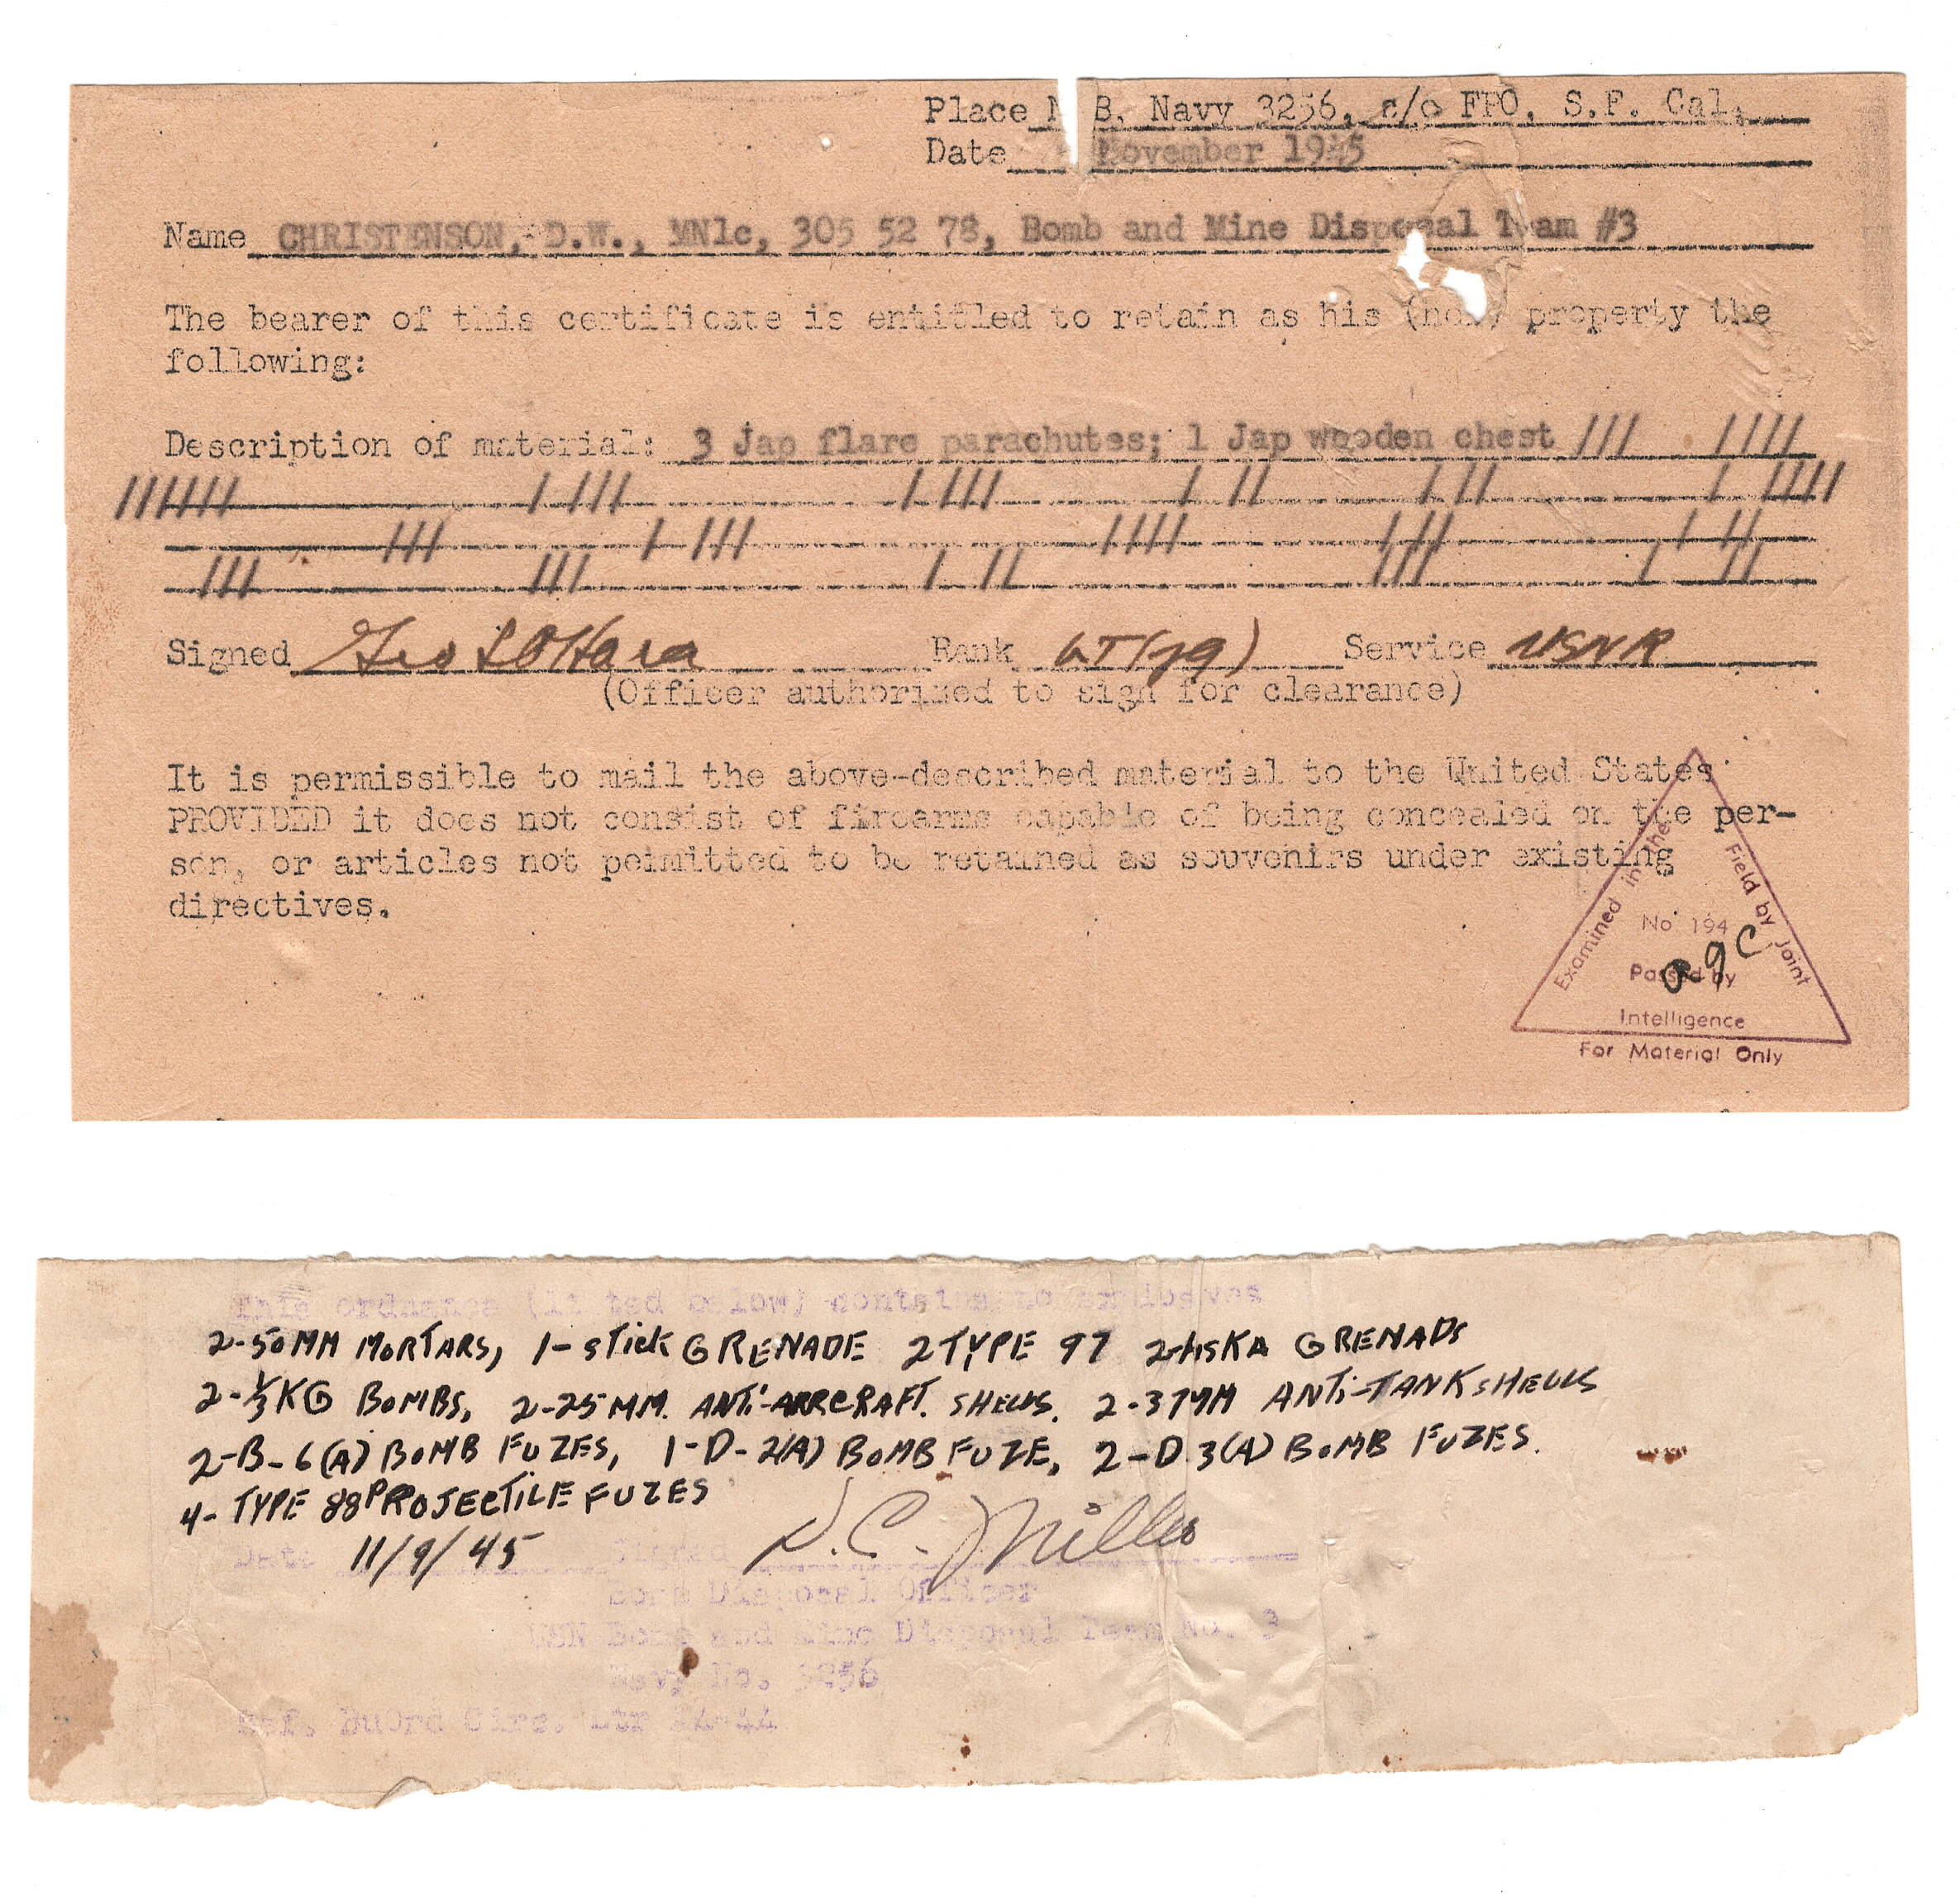 Place N B. Navy 3256, c/o FPO, S.F. Cal.
Date November 1945
Name CHRISTENSON, D.W., MN1c, 305 52 78, Bomb and Mine Disposal Team #3
The bearer of this certificate is entitled to retain as his (now) property the
following:
Description of material: 3 Jap flare parachutes; 1 Jap wooden chest /// ////
////// / /// / /// / // / // / ////
/// / /// //// / // / //
/// /// / // /// / //
Signed Geo L O'Hara Rank LT(jg) Service USNR
(Officer authorized to sign for clearance)
It is permissible to mail the above-described material to the United States
PROVIDED it does not consist of firearms capable of being concealed on the per-
son, or articles not peimitted to be retained as souvenirs under existing
directives.
Examined in the Field by Joint
No. 194
Passed by
Intelligence
For Material Only
This ordnance (listed below) contains no explosives
2-50MM MORTARS, 1-STICK GRENADE 2 TYPE 97 2- GRENADS
2-1/3 KG BOMBS, 2-25 MM. ANTI-ARRCRAFT. SHELLS. 2-37MM ANTI-TANK SHELLS
2-B-6(A) BOMB FUZES, 1-D-2(A) BOMB FUZE, 2-D.3(A) BOMB FUZES.
4- TYPE 88 PROJECTILE FUZES
Date 11/9/45 Signed N.C. Miller
Bomb Disposal Officer
USN Bomb and Mine Disposal Team No. 3
Navy No. 3256
Ref. BuOrd Circ. Ltr